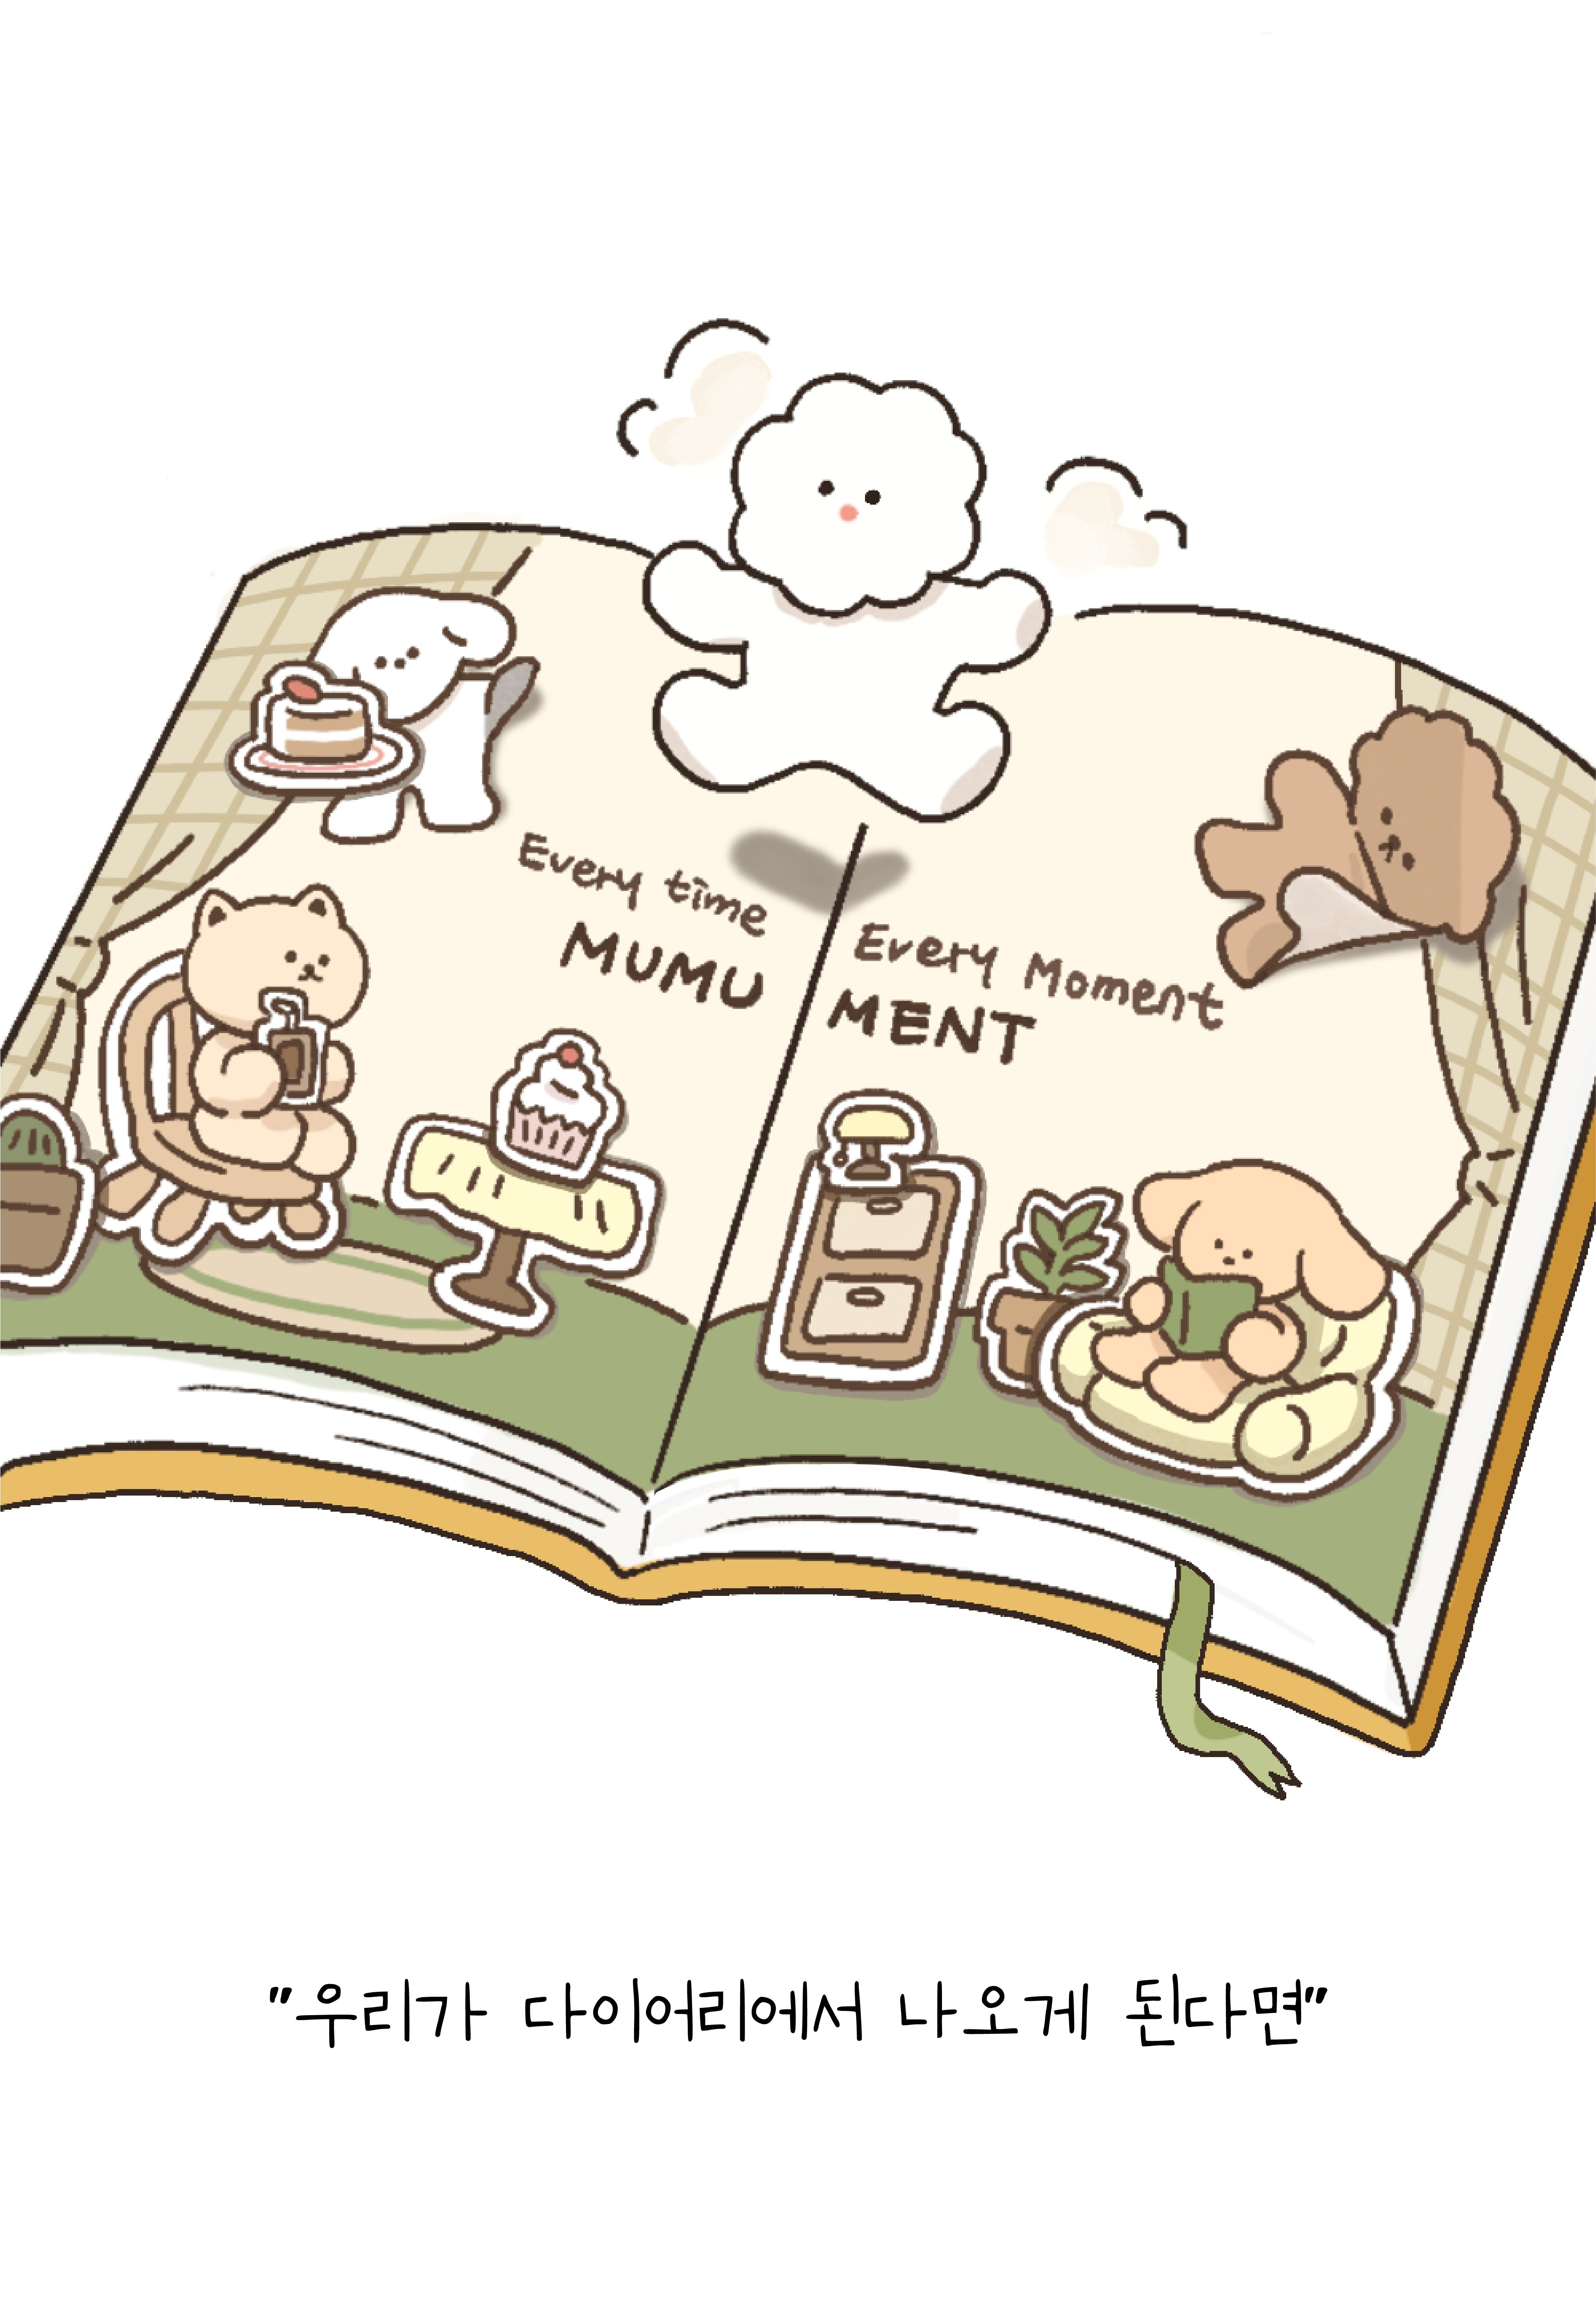 Every time
MUMU
Every Moment
MENT
"우리가 다이어리에서 나오게 된다면"